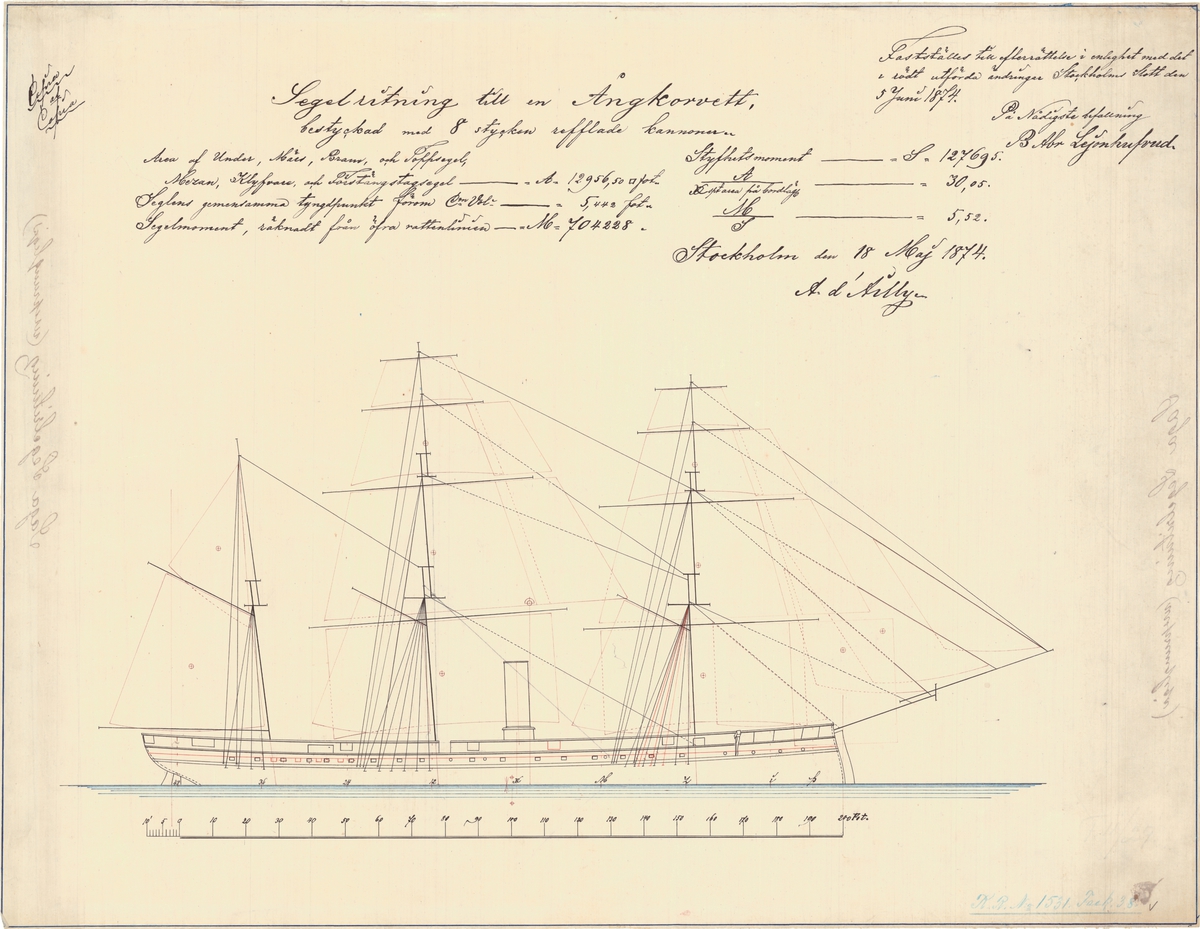 Fastställes till efterrättelse i enlighet med det
i rödt utförda ändringer Stockholms Slott den
5 Juni 1874.
På Nådigste befallning
B Abr Lejonhufvud.
Copia
af
Copia
Segelritning till en Ångkorvett,
bestyckad med 8 stycken refflade kannoner.
Area af Under, Märs, Bram, och Toppsegel,
Mezan, Klyfvare, och Förstängstagsegel = A = 12956,50 □ fot.
Seglens gemensamma tyngdpunkt förom = 5,442 fot.
Segelmoment, räknadt från öfra vattenlinien = M = 704228.
Styfhetsmoment = S = 127695.
A = 30,05.
M
S = 5,52.
Stockholm den 18 Maj 1874.
A. d'Ailly
10 5 0 10 20 30 40 50 60 70 80 90 100 110 120 130 140 150 160 170 180 190 200 Fot.
K.R. No 1561